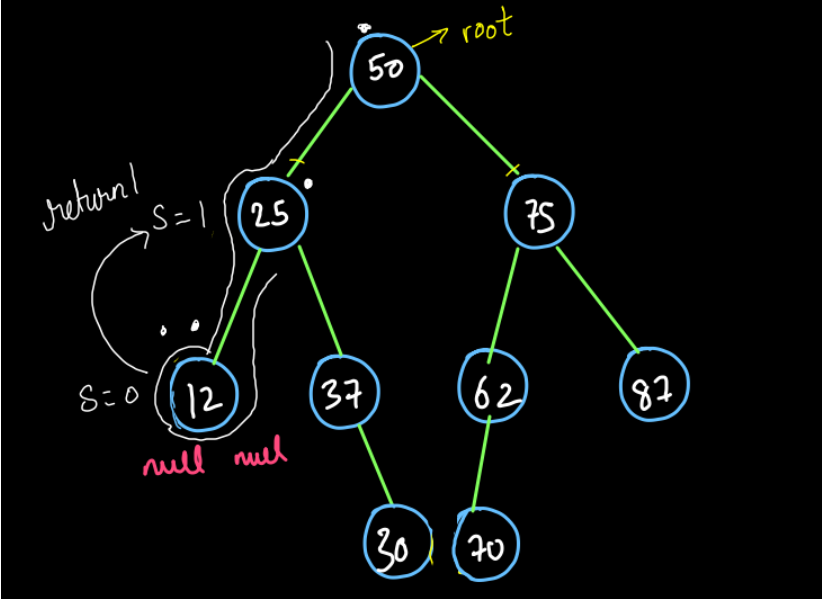 root
50
return 1
S=1
25
75
S=0
12
37
62
87
null null
30
70